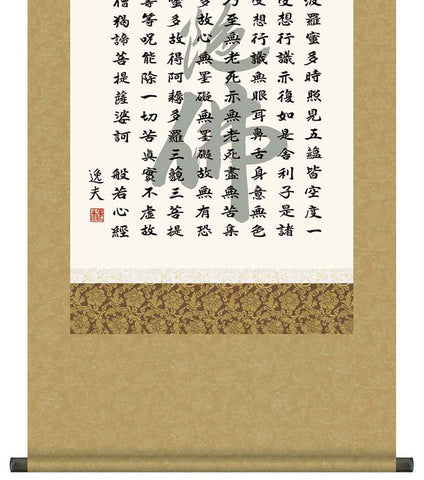 波羅蜜多時照見五蘊皆空度一
受想行識亦復如是舎利子是諸
受想行識無眼耳鼻舌身意無色
乃至無老死亦無老死盡無苦集
多故心無罣礙無罣礙故無有恐
蜜多故得阿耨多羅三藐三菩提
等等呪能除一切苦真實不虚故
僧羯諦菩提薩婆訶 般若心経
逸夫
佛